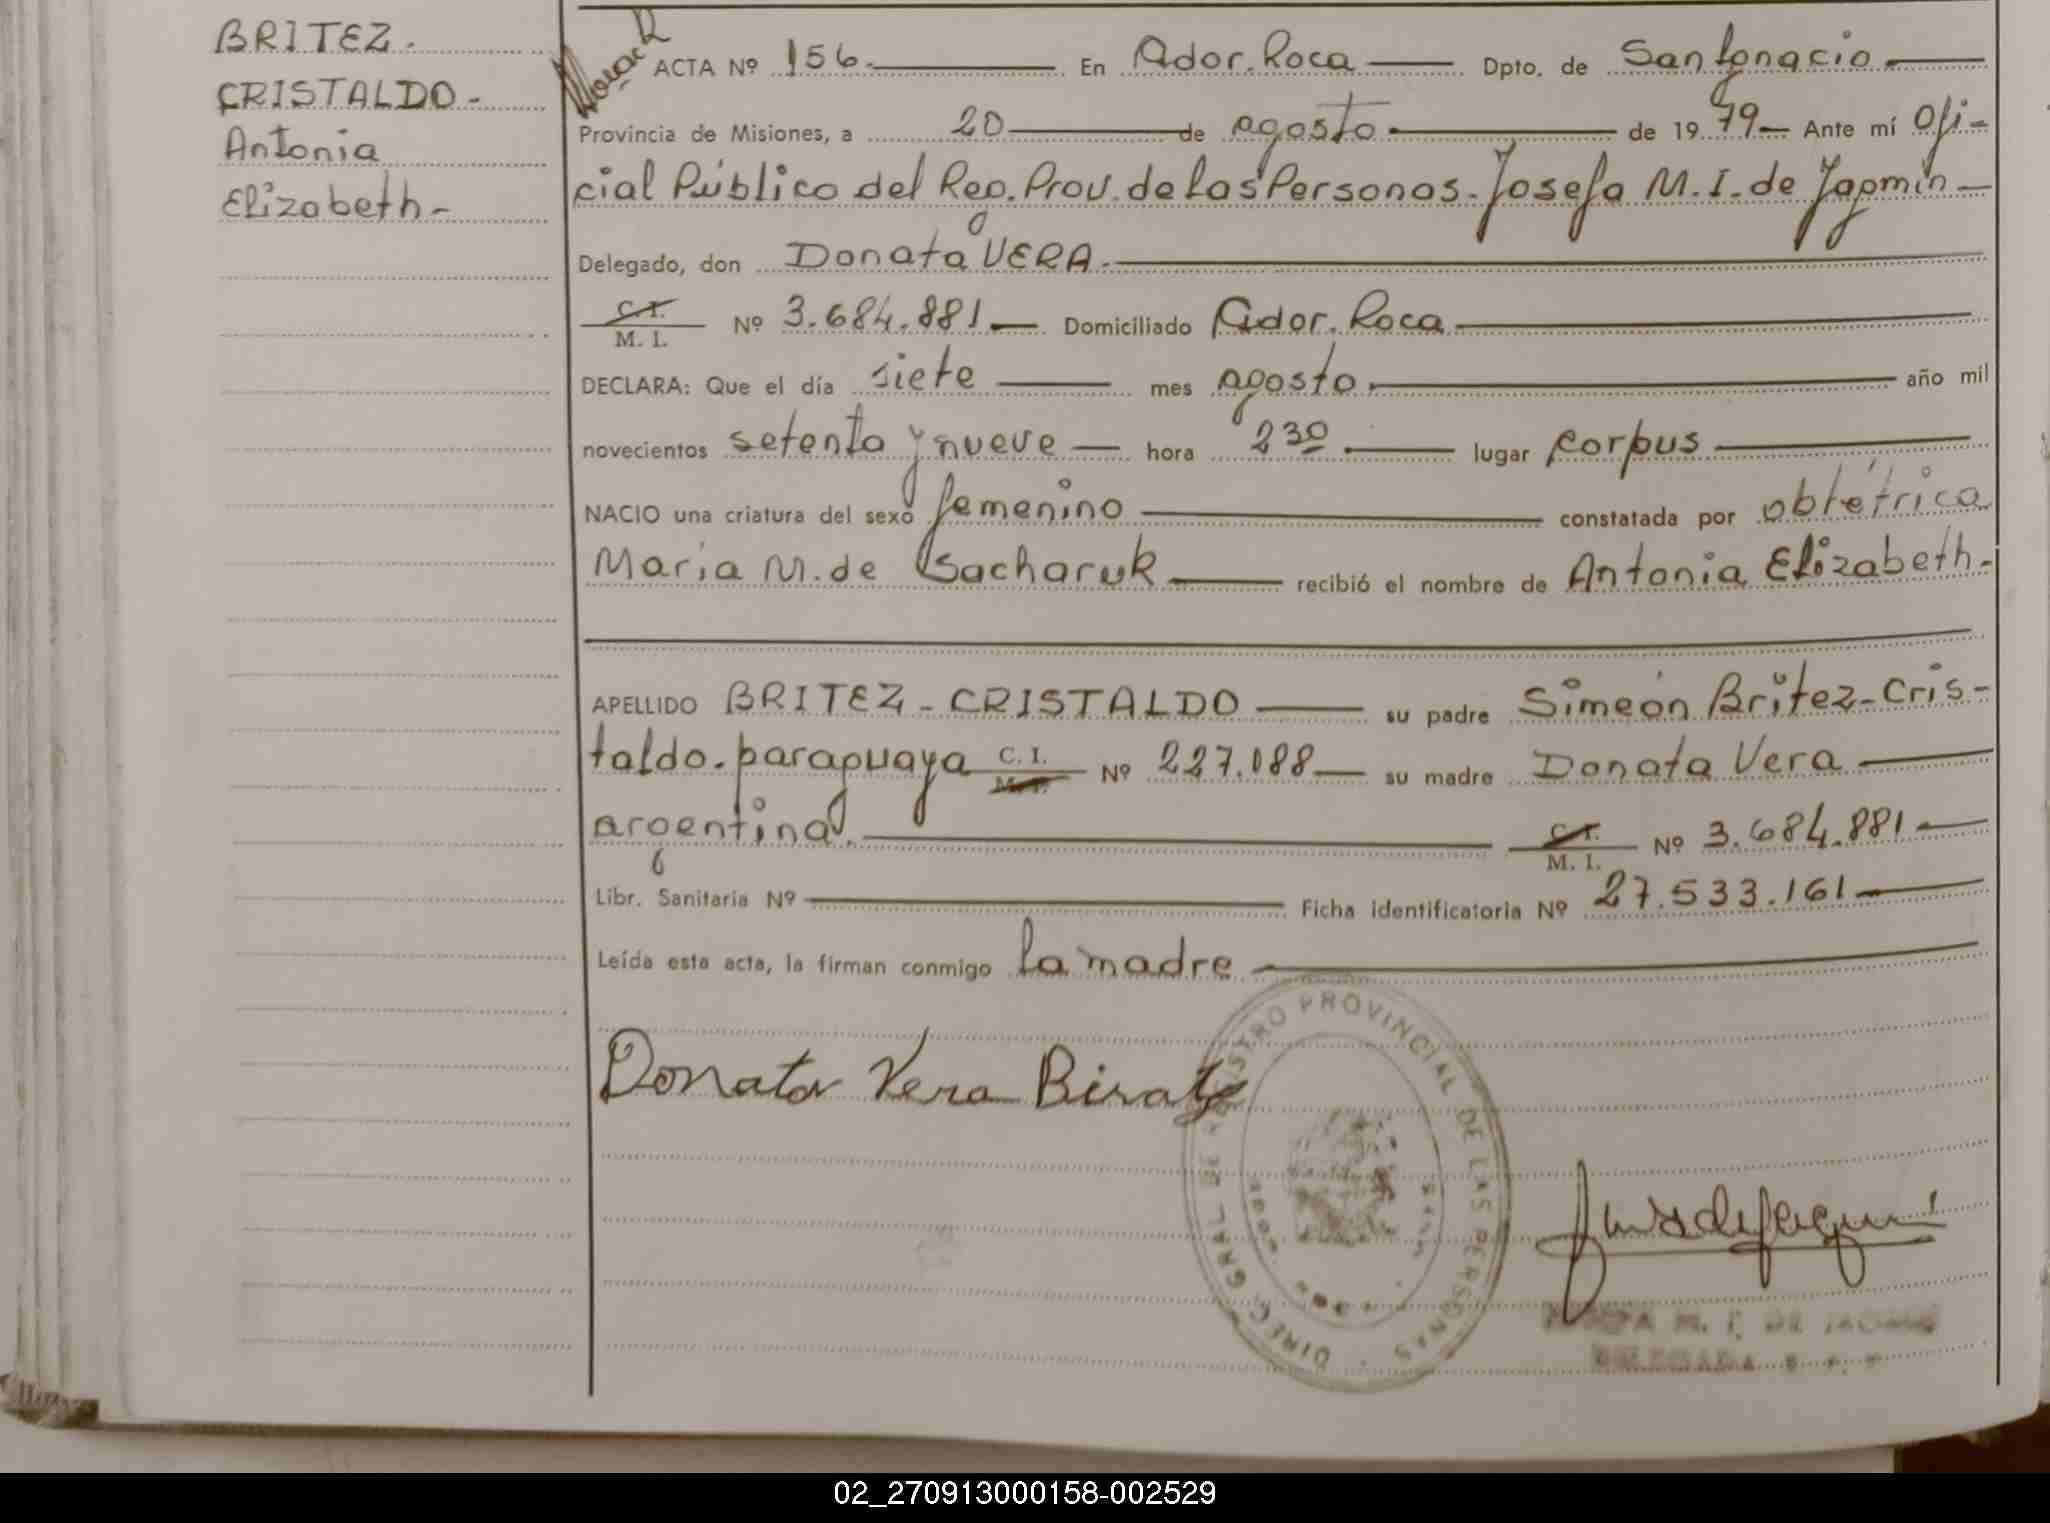 BRITEZ.
CRISTALDO-
Antonia
Elizabeth-
ACTA Nº 156. En Ador. Roca Dpto. de San Ignacio
Provincia de Misiones, a 20 de agosto de 1979 Ante mí Ofi-
cial Público del Reg. Prov. de las Personas. Josefa M. I. de Jaqmin
Delegado, don Donata VERA.
C. I.
M. I. Nº 3.684.881 Domiciliado Ador. Roca
DECLARA: Que el día siete mes agosto. año mil
novecientos setenta y nueve hora 2 30 lugar Corpus
NACIO una criatura del sexo femenino constatada por obtétrica
María M. de Sacharuk recibió el nombre de Antonia Elizabeth-
APELLIDO BRITEZ-CRISTALDO su padre Simeón Britez-Cris-
taldo. paraguaya C. I. M. I. Nº 227.088 su madre Donata Vera
argentina. C. I. M. I. Nº 3.684.881
Libr. Sanitaria Nº Ficha identificatoria Nº 27.533.161
Leída esta acta, la firman conmigo la madre
Donata Vera
DIREC. GRAL. DE REGISTRO PROVINCIAL DE LAS PERSONAS
02_270913000158-002529